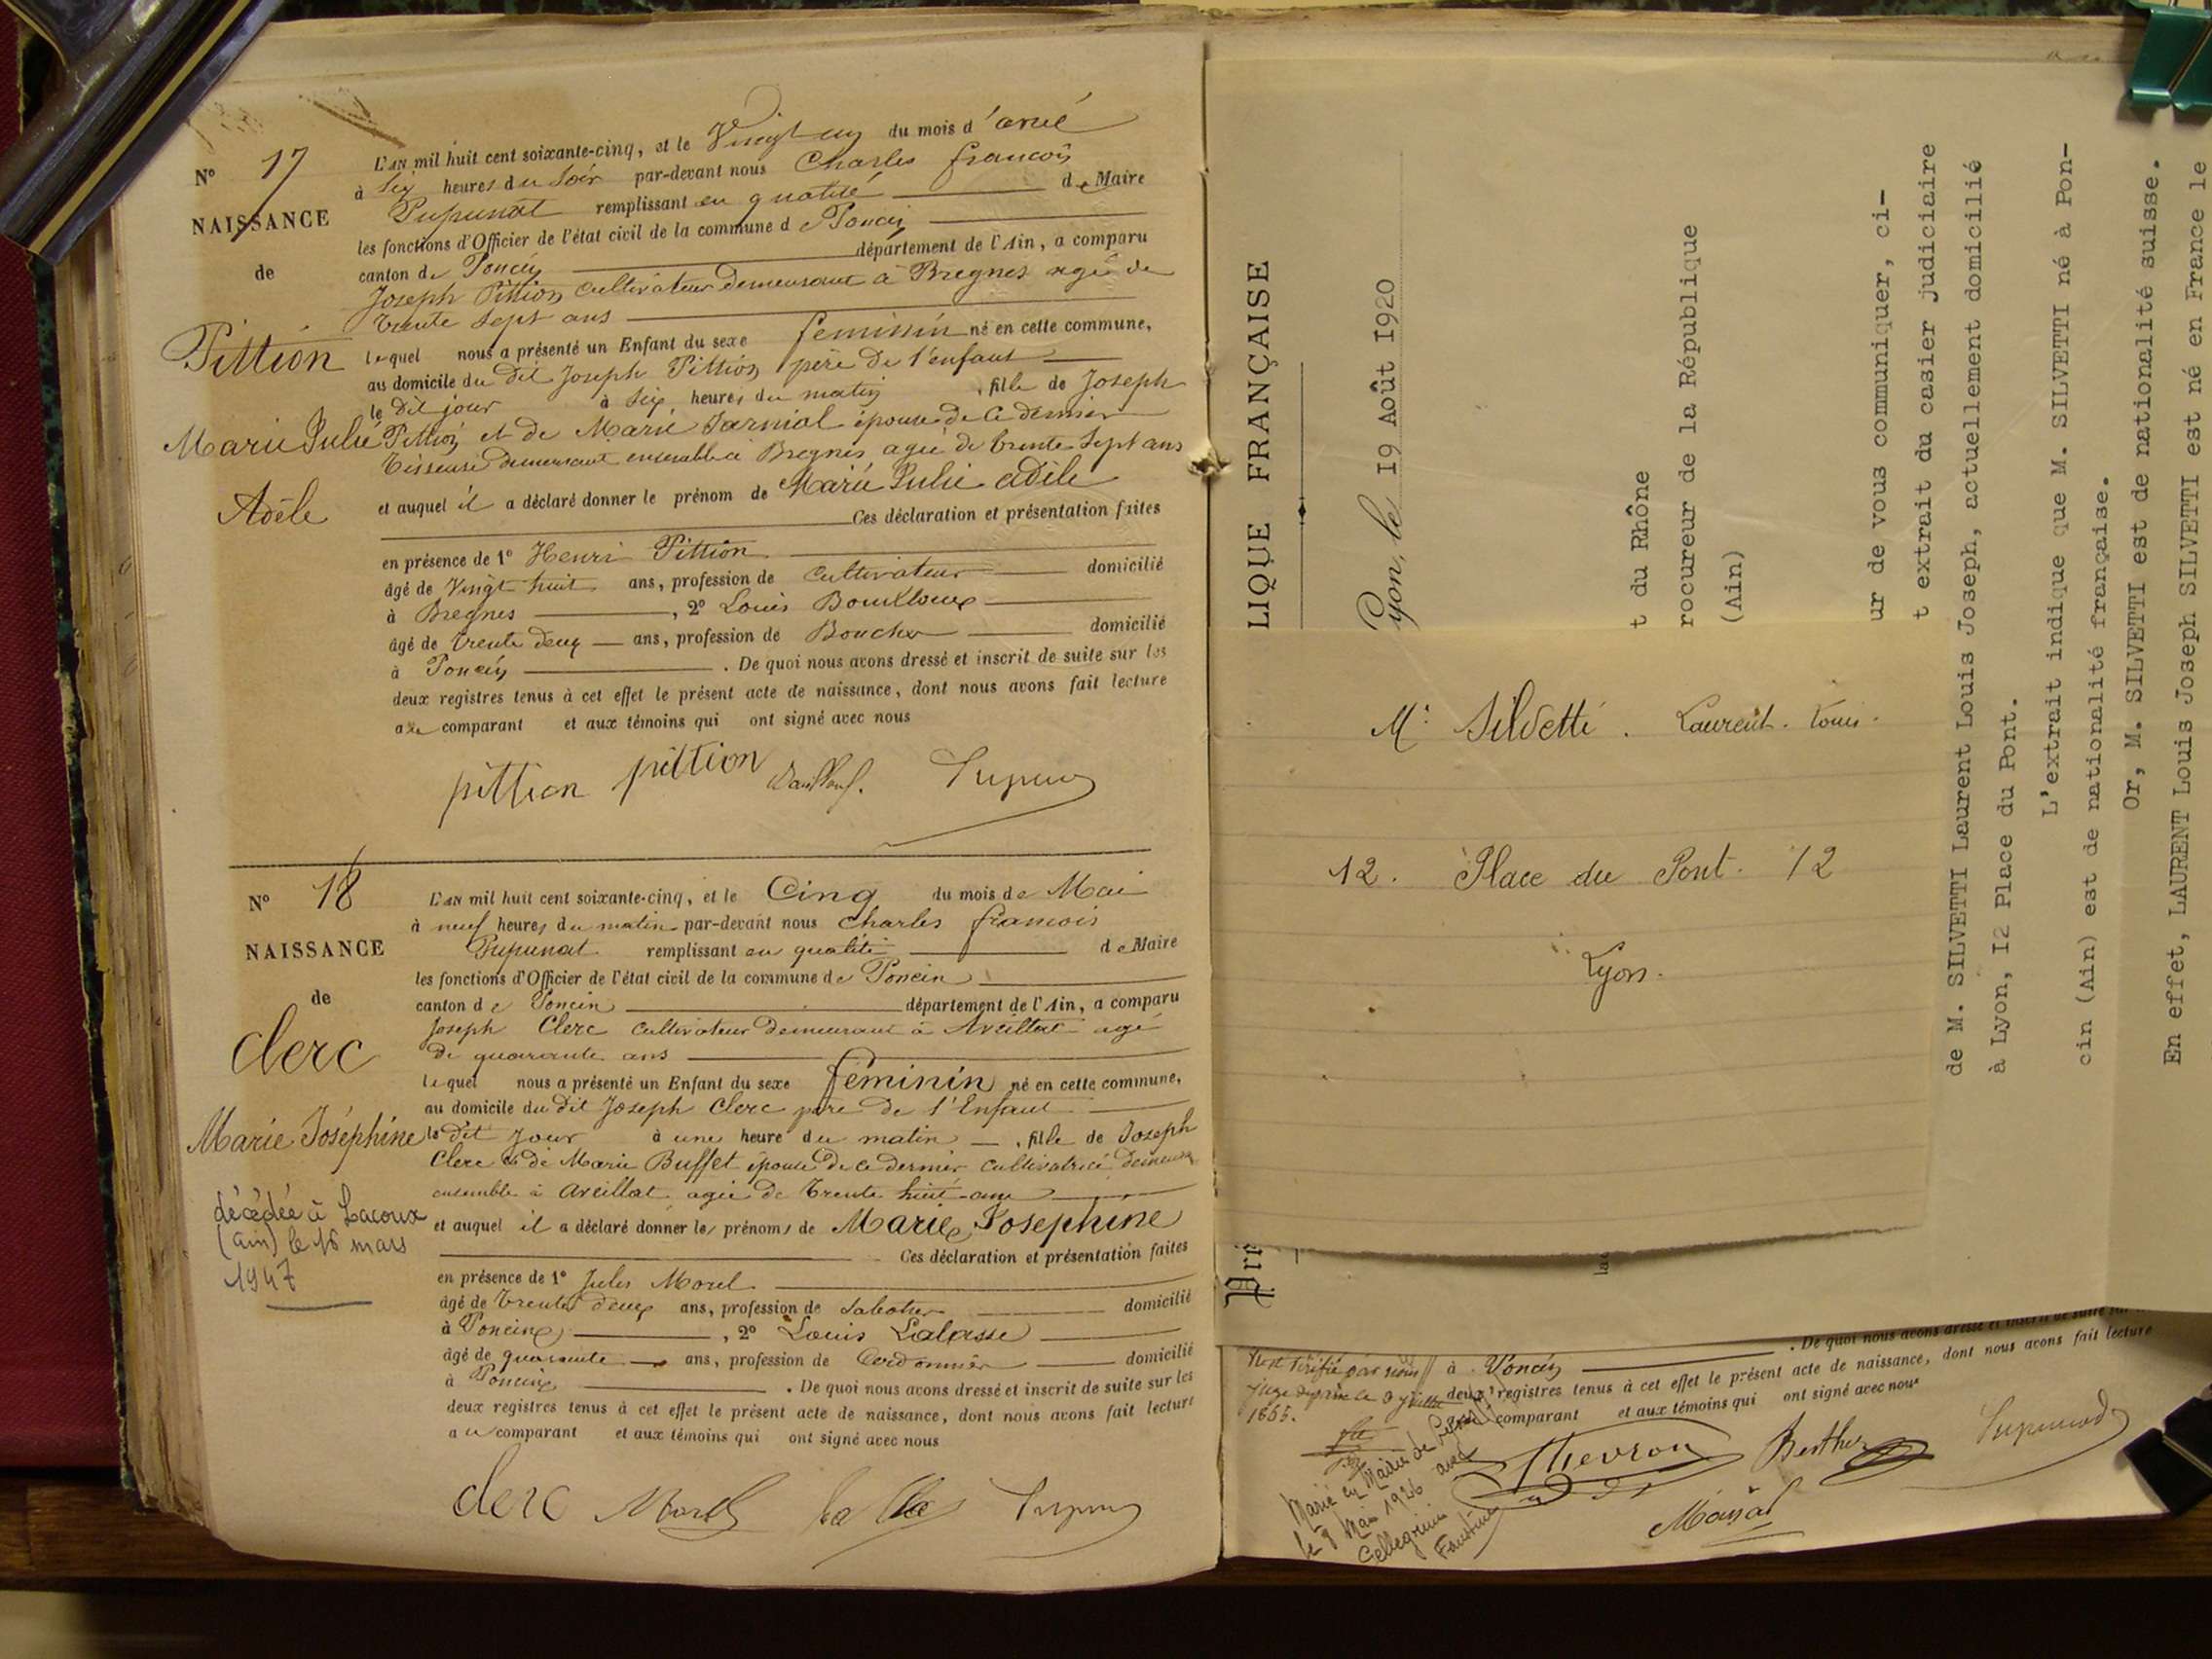 N° 17
NAISSANCE
de
Pittion
Marie Julie
Adèle
L'AN mil huit cent soixante-cinq, et le Vingt un du mois d'avril
à Six heures du Soir par-devant nous Charles françois
Pupunat remplissant en qualité de Maire
les fonctions d'Officier de l'état civil de la commune de Poncin
canton de Poncin département de l'Ain, a comparu
Joseph Pittion cultivateur demeurant à Bregnes agé de
trente Sept ans
lequel nous a présenté un Enfant du sexe féminin né en cette commune,
au domicile du dit Joseph Pittion père de l'enfant
le dit jour à Six heures du matin, fille de Joseph
Pittion et de Marie Jarniol épouse de ce dernier
tisseuse demeurant ensemble à Bregnes agée de trente Sept ans
et auquel il a déclaré donner le prénom de Marie Julie adèle
Ces déclaration et présentation faites
en présence de 1° Henri Pittion
âgé de Vingt huit ans, profession de Cultivateur domicilié
à Bregnes, 2° Louis
âgé de trente deux ans, profession de Boucher domicilié
à Poncin. De quoi nous avons dressé et inscrit de suite sur les
deux registres tenus à cet effet le présent acte de naissance, dont nous avons fait lecture
au comparant et aux témoins qui ont signé avec nous
pittion pittion Pupunat
N° 18
NAISSANCE
de
Clerc
Marie Joséphine
décédée à Lacoux
(ain) le 16 mars
1947
L'AN mil huit cent soixante-cinq, et le Cinq du mois de Mai
à neuf heures du matin par-devant nous Charles françois
Pupunat remplissant en qualité de Maire
les fonctions d'Officier de l'état civil de la commune de Poncin
canton de Poncin département de l'Ain, a comparu
Joseph Clerc cultivateur demeurant à Aveillat agé
de quarante ans
lequel nous a présenté un Enfant du sexe féminin né en cette commune,
au domicile du dit Joseph Clerc père de l'Enfant
le dit jour à une heure du matin, fille de Joseph
Clerc & de Marie Buffet épouse de ce dernier cultivatrice demeurant
ensemble à Aveillat agée de trente huit ans
et auquel il a déclaré donner les prénoms de Marie Josephine
Ces déclaration et présentation faites
en présence de 1° Jules Morel
âgé de trente deux ans, profession de Sabotier domicilié
à Poncin, 2° Louis Lalasse
âgé de quarante ans, profession de Cordonnier domicilié
à Poncin. De quoi nous avons dressé et inscrit de suite sur les
deux registres tenus à cet effet le présent acte de naissance, dont nous avons fait lecture
au comparant et aux témoins qui ont signé avec nous
Clerc Morel Pupunat
LIQUE FRANÇAISE
Lyon, le 19 Août 1920
t du Rhône
rocureur de la République
(Ain)
ur de vous communiquer, ci-
t extrait du casier judiciaire
de M. SILVETTI Laurent Louis Joseph, actuellement domicilié
à Lyon, I2 Place du Pont.
L'extrait indique que M. SILVETTI né à Pon-
cin (Ain) est de nationalité française.
Or, M. SILVETTI est de nationalité suisse.
En effet, LAURENT Louis Joseph SILVETTI est né en France le
Mr Silvetti. Laurent. Louis.
12. Place du Pont. 12
Lyon.
. De quoi nous avons dressé et inscrit de suite sur
à Poncin
deux registres tenus à cet effet le présent acte de naissance, dont nous avons fait lecture
comparant et aux témoins qui ont signé avec nous
1865.
Marié en Mairie de Lyon
le 9 Mai 1926 avec
Pellegrinii
Faustina
Thevron Berthe Pupunat